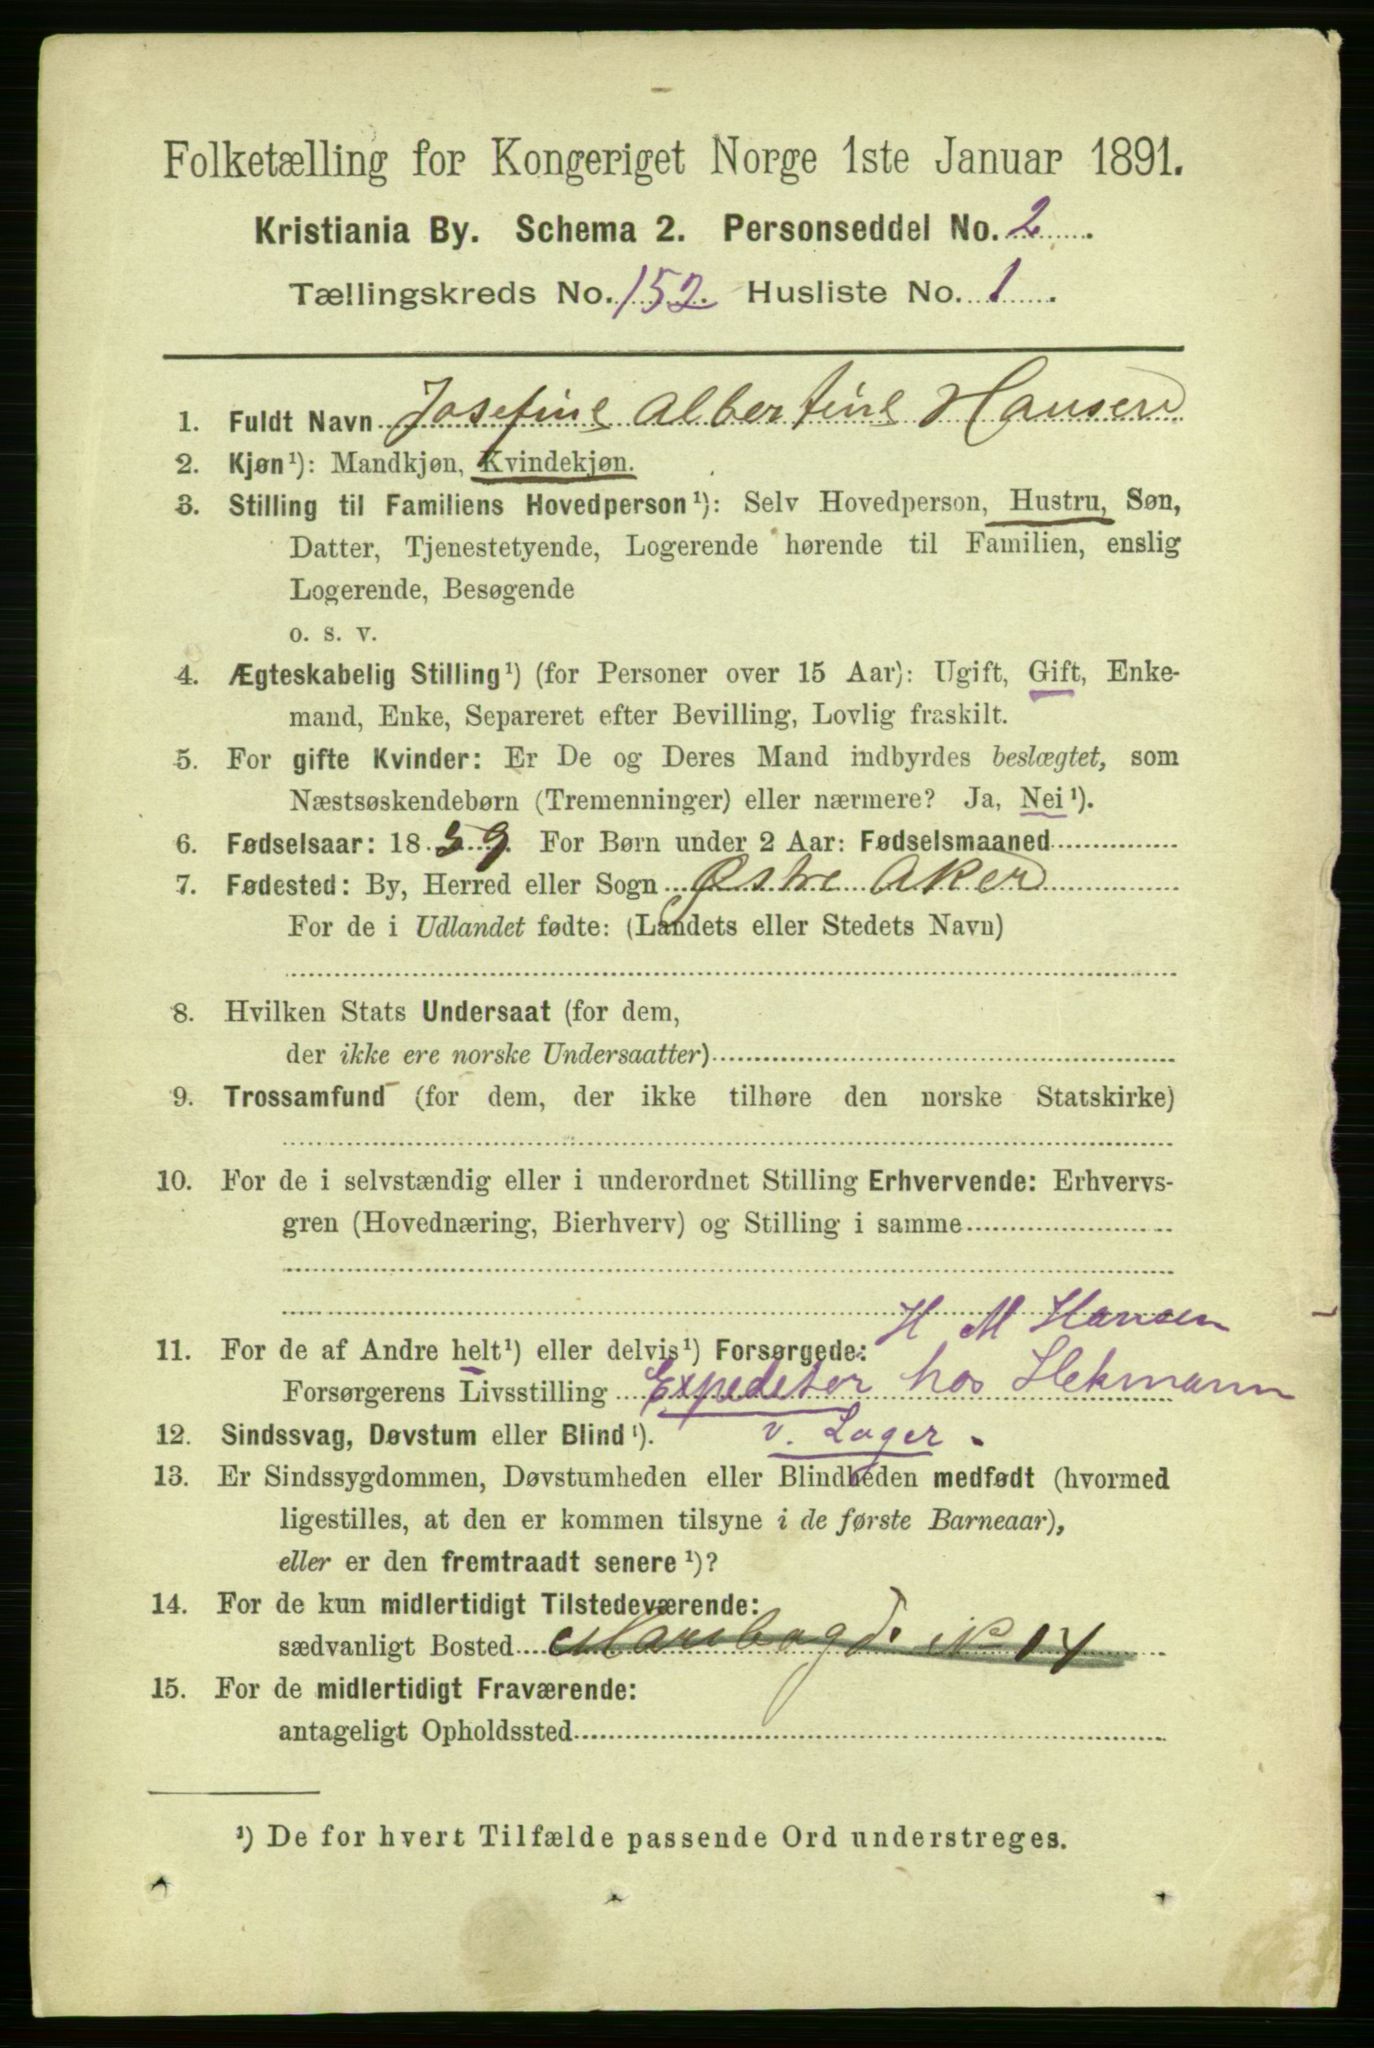 Folketælling for Kongeriget Norge 1ste Januar 1891.
Kristiania By. Schema 2. Personseddel No. 2.
Tællingskreds No. 152. Husliste No. 1.
1. Fuldt Navn Josefine Albertine Hansen
2. Kjøn¹): Mandkjøn, Kvindekjøn.
3. Stilling til Familiens Hovedperson¹): Selv Hovedperson, Hustru, Søn,
Datter, Tjenestetyende, Logerende hørende til Familien, enslig
Logerende, Besøgende
o. s. v.
4. Ægteskabelig Stilling¹) (for Personer over 15 Aar): Ugift, Gift, Enke-
mand, Enke, Separeret efter Bevilling, Lovlig fraskilt.
5. For gifte Kvinder: Er De og Deres Mand indbyrdes beslægtet, som
Næstsøskendebørn (Tremenninger) eller nærmere? Ja, Nei¹).
6. Fødselsaar: 1859. For Børn under 2 Aar: Fødselsmaaned
7. Fødested: By, Herred eller Sogn Østre Aker
For de i Udlandet fødte: (Landets eller Stedets Navn)
8. Hvilken Stats Undersaat (for dem,
der ikke ere norske Undersaatter)
9. Trossamfund (for dem, der ikke tilhøre den norske Statskirke)
10. For de i selvstændig eller i underordnet Stilling Erhvervende: Erhvervs-
gren (Hovednæring, Bierhverv) og Stilling i samme
H M Hansen
11. For de af Andre helt¹) eller delvis¹) Forsørgede:
Forsørgerens Livsstilling Expeditør hos Hekmann
v. Lager.
12. Sindssvag, Døvstum eller Blind¹).
13. Er Sindssygdommen, Døvstumheden eller Blindheden medfødt (hvormed
ligestilles, at den er kommen tilsyne i de første Barneaar),
eller er den fremtraadt senere¹)?
14. For de kun midlertidigt Tilstedeværende:
sædvanligt Bosted No 14
15. For de midlertidigt Fraværende:
antageligt Opholdssted
¹) De for hvert Tilfælde passende Ord understreges.